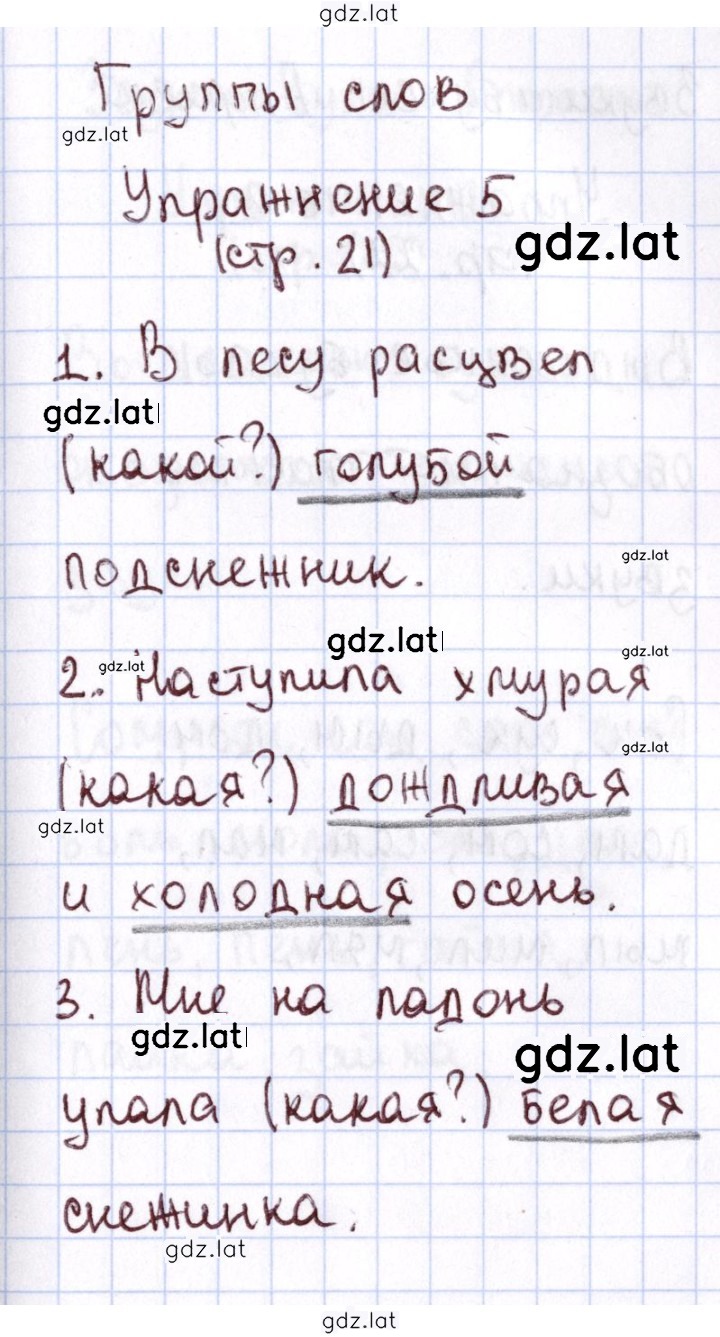 gdz.lat
Группы слов
gdz.lat
Упражнение 5
gdz.lat
(стр. 21)
1. В лесу расцвел
gdz.lat
(какой?) голубой
подснежник.
gdz.lat
gdz.lat
gdz.lat
gdz.lat
2. Наступила хмурая
gdz.lat
(какая?) дождливая
gdz.lat
и холодная осень.
3. Мне на ладонь
gdz.lat
gdz.lat
упала (какая?) белая
снежинка.
gdz.lat
gdz.lat